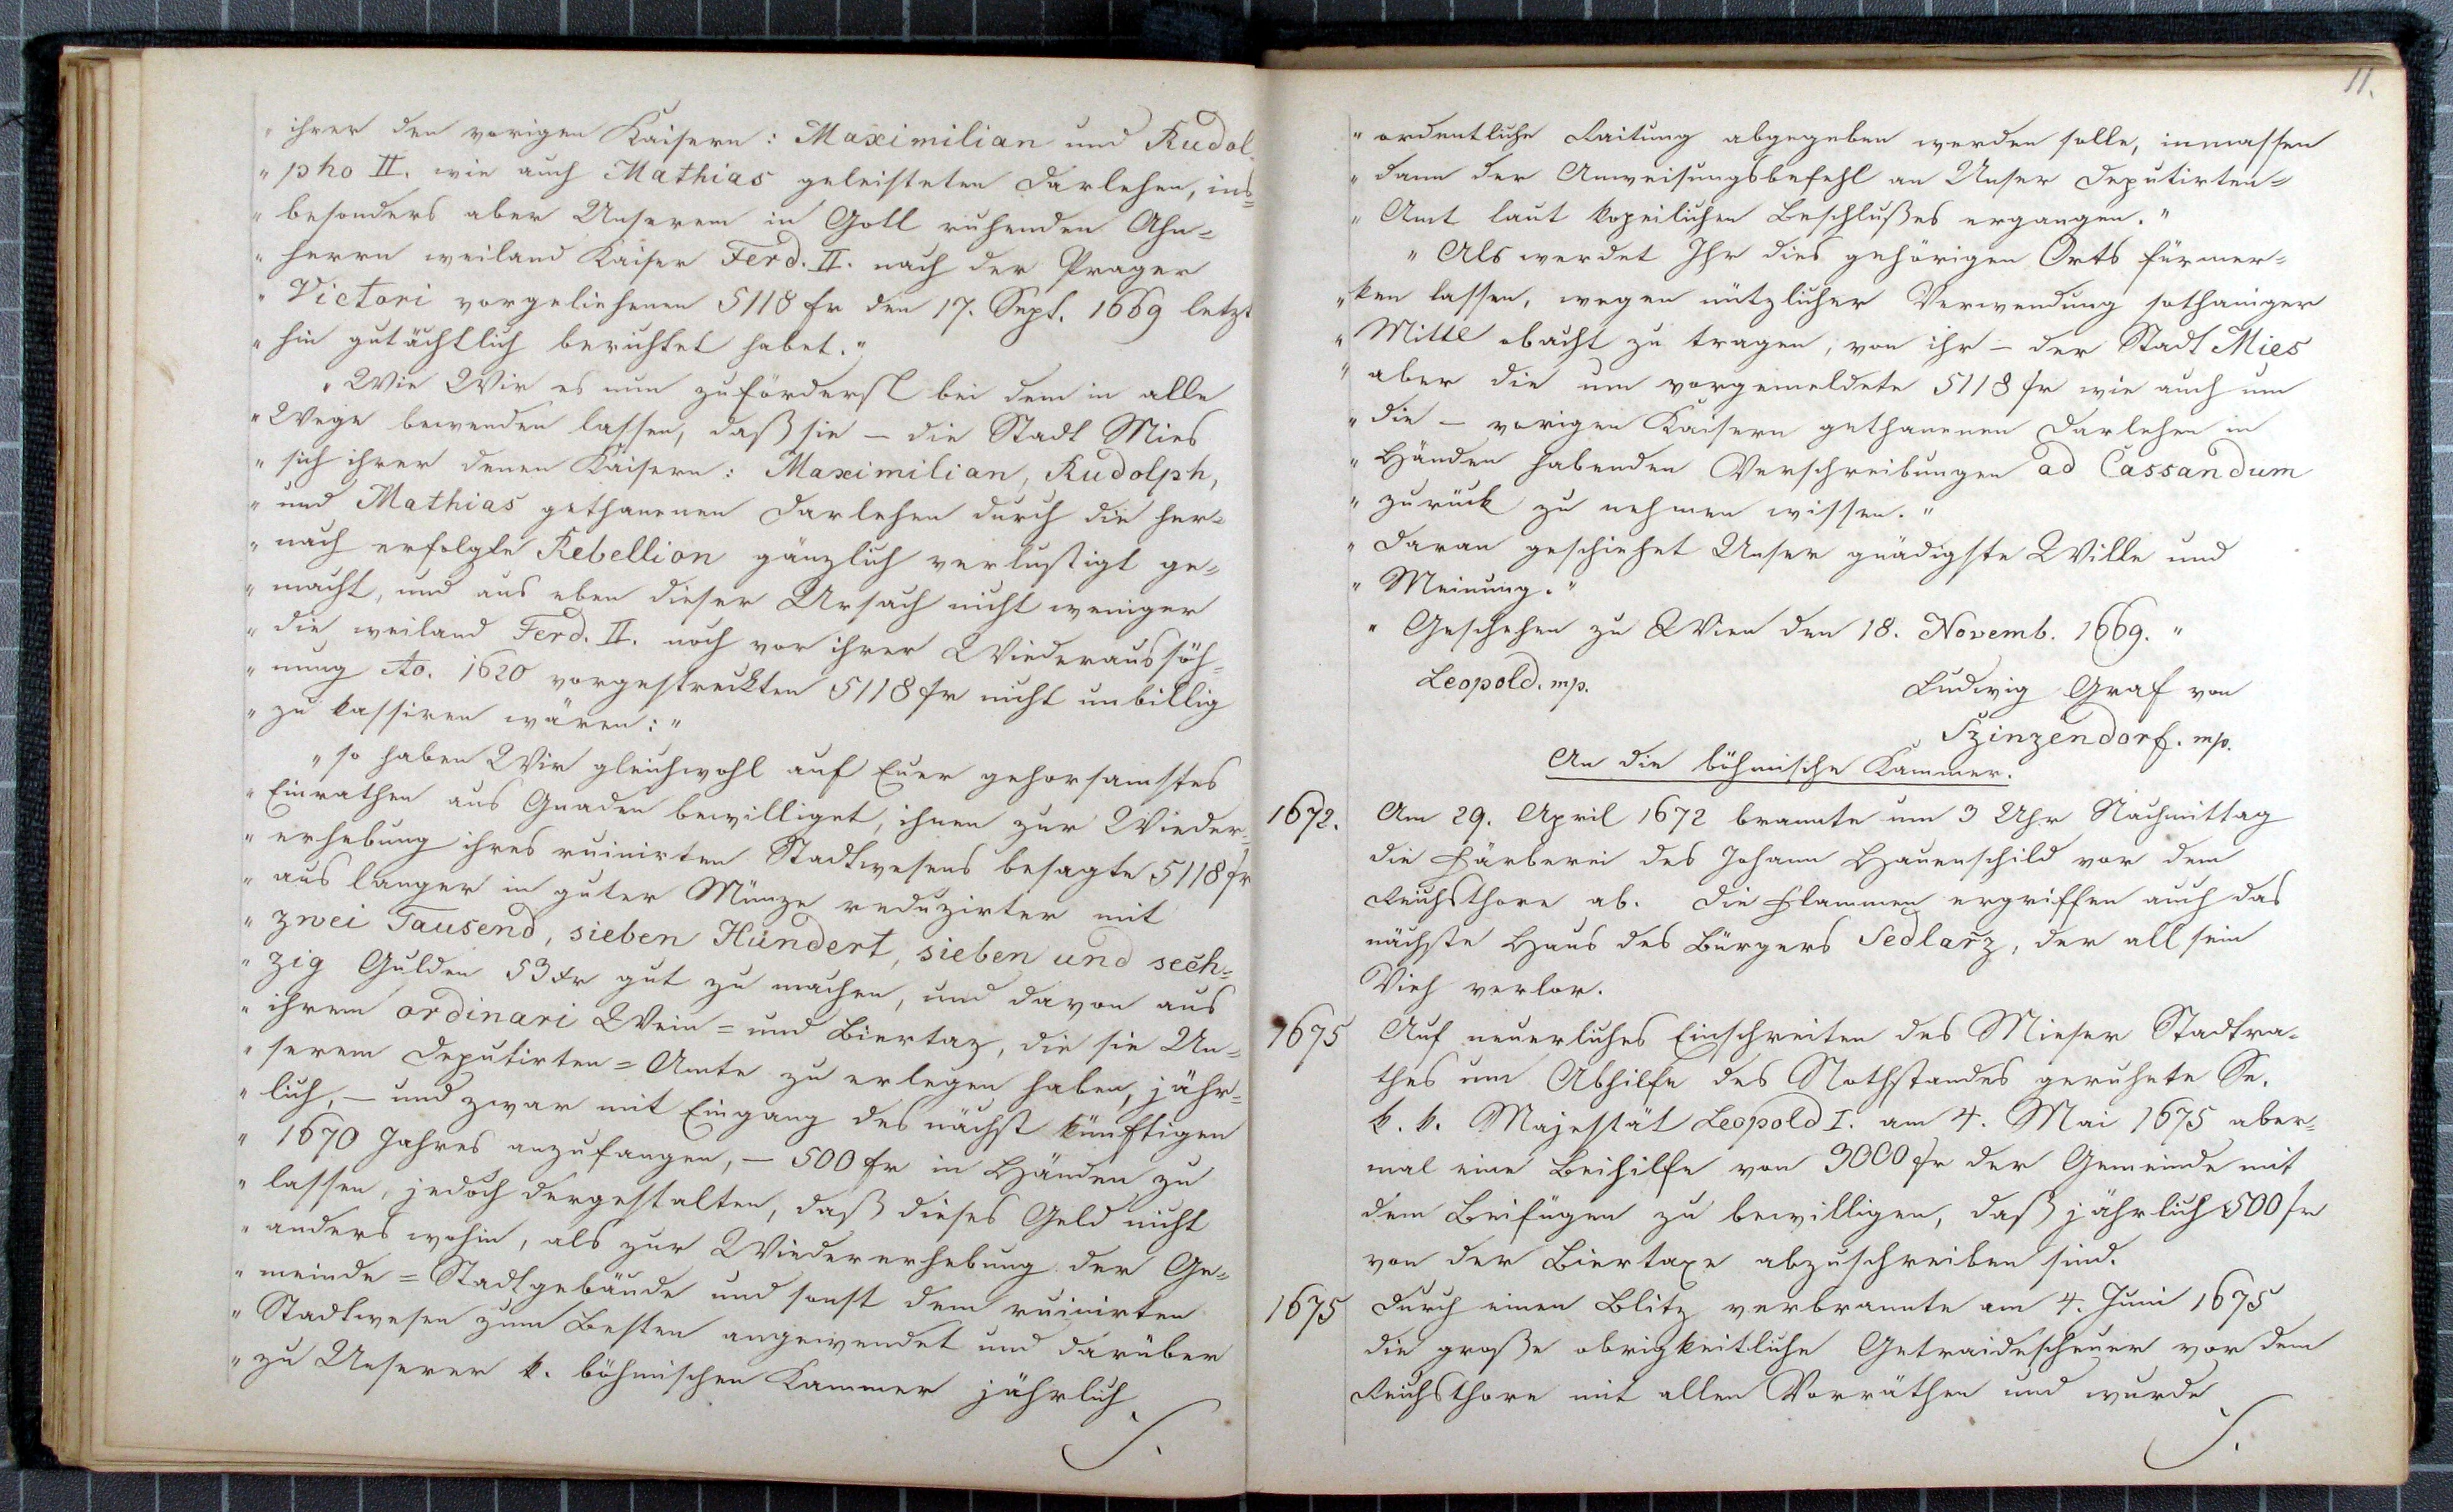 " ihrer den vorigen Kaisern: Maximilian und Rudol¬
" pho II. wie auch Mathias geleisteten Darlehen, ins=
" besonders aber Unserem in Gott ruhenden Ahn=
" herrn weiland Kaiser Ferd. II. nach der Prager
" Victori vorgeliehenen 5118 fr den 17. Sept. 1669 letzt
" hin gutächtlich berichtet habet."
" Wie Wir es nun zuförderst bei dem in alle
" Wege bewenden lassen, daß sie – die Stadt Mies
" sich ihrer denen Kaisern: Maximilian, Rudolph,
" und Mathias gethanenen Darlehen durch die her=
" nach erfolgte Rebellion gänzlich verlustigt ge=
" macht, und aus eben dieser Ursach nicht weniger
" die weiland Ferd. II. noch vor ihrer Wiederaussöh=
" nung Ao. 1620 vorgestreckten 5118 fr nicht unbillig
" zu kassiren wären:"
" so haben Wir gleichwohl auf Euer gehorsamstes
" Einrathen aus Gnaden bewilliget, ihnen zur Wieder=
" erhebung ihres ruinirten Stadtwesens besagte 5118 fr
" aus langer in guter Münze reduzirter mit
" zwei Tausend, sieben Hundert, sieben und sech=
" zig Gulden 53 xr gut zu machen, und davon aus
" ihrem ordinari Wein= und Biertaz, die sie Un=
" serem Deputirten=Amte zu erlegen haben, jähr=
" lich, – und zwar mit Eingang des nächst künftigen
" 1670 Jahres anzufangen, – 500 fr in Händen zu
" lassen, jedoch dergestalten, daß dieses Geld nicht
" anders wohin, als zur Wiedererhebung der Ge=
" meinde=Stadtgebäude und sonst dem ruinirten
" Stadtwesen zum Besten angewendet und darüber
" zu Unserer k. böhmischen Kammer jährlich
11.
" ordentliche Raitung abgegeben werden solle, inmassen
" dann der Anweisungsbefehl an Unser Deputirten=
" Amt laut kopeilichen Beschlußes ergangen."
" Als werdet Ihr dies gehörigen Orts fürmer=
" ken lassen, wegen nützlicher Verwendung sothaniger
" Mittl obacht zu tragen, von ihr – der Stadt Mies
" aber die um vorgemeldete 5118 fr wie auch um
" die – vorigen Kaisern gethanenen Darlehen in
" Händen habenden Verschreibungen ad Cassandum
" zurück zu nehmen wissen."
" Daran geschiehet Unser gnädigste Wille und
" Meinung."
" Geschehen zu Wien den 18. Novemb. 1669."
Leopold. mp. Ludwig Graf von
Szinzendorf. mp.
An die böhmische Kammer.
1672. Am 29. April 1672 brannte um 3 Uhr Nachmittag
die Färberei des Johann Hauenschild vor dem
Reichsthore ab. Die Flammen ergriffen auch das
nächste Haus des Bürgers Sedlarz, der all sein
Vieh verlor.
1675 Auf neuerliches Einschreiten des Mieser Stadtra=
thes um Abhilfe des Nothstandes geruhete Se.
k. k. Majestät Leopold I. am 4. Mai 1675 aber=
mal eine Beihilfe von 3000 fr der Gemeinde mit
dem Beifügen zu bewilligen, daß jährlich 500 fr
von der Biertaxe abzuschreiben sind.
1675 Durch einen Blitz verbrannte am 4. Juni 1675
die große obrigkeitliche Getraidescheuer vor dem
Reichsthore mit allen Vorräthen und wurde